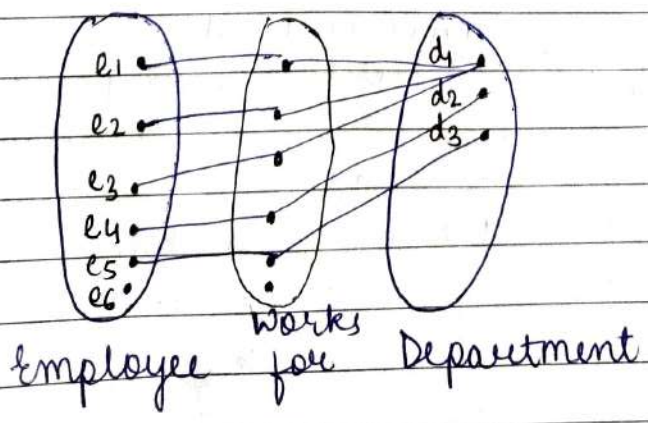 e1
e2
e3
e4
e5
e6
d1
d2
d3
Employee
Works
for
Department